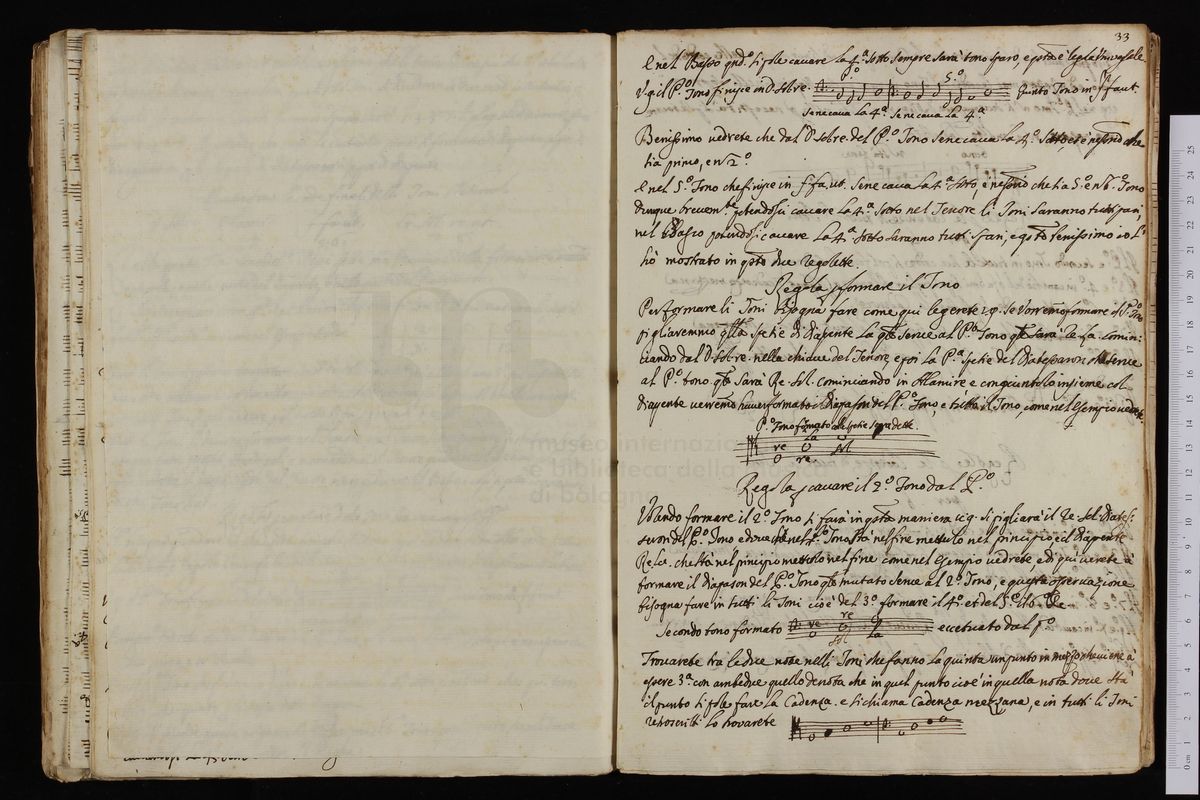 33
E nel Basso qndo. si pole cavare la 4a. sotto sempre sarà tono sparo, e qsta è regola universale
v.g. il Po. Tono finisce in D sol re.
5o.
quinto Tono in F faut.
se ne cava la 4a. se ne cava la 4a.
Benissimo vedrete che dal D sol re del Po. Tono se ne cava la 4a. sotto, che
sia primo, e non 2o.
E nel 5o. Tono che finisce in f fa ut. se ne cava la 4a. sotto, che sia 5o. e non 6o. Tono
Dunque brevemte. potendosi cavare la 4a. sotto nel Tenore li Toni saranno tutti pari
nel Basso potendosi cavare la 4a. sotto saranno tutti spari, e qsto benissimo io l'
hò mostrato in qste due regolette.
Regola p formare il Tono
Per formare li Toni bisogna fare come qui legerete v.g. Se vorremo formare il Po. Tono
pigliaremmo qlla spetie di diapente la qle serve al Po. Tono qle sarà Re la. comin:
ciando dal D sol re nella chiave del Tenore, e poi la Pa. spetie del diatessaron che serve
al Po. tono qle sarà Re sol cominciando in Alamire e congiuntolo insieme col
diapente verremo haver formato il Diapason del Po. Tono, e tutto il Tono, come nel esempio vedrete.
Po. Tono formato dalle spetie sopra dette
re la sol
re
Regola p cavare il 2o. Tono dal Po.
Volendo formare il 2o. Tono si farà in qsta maniera cioè si pigliarà il Re sol diates:
saron del Po. Tono e dove che nel Po. Tono stà nel fine mettelo nel principio, e il diapente
Re la. che stà nel principio mettelo nel fine come nel esempio vedrete, e di qui verete à
formare il diapason del Po. Tono qle mutato serve al 2o. Tono, e questa osservazione
bisogna fare in tutti li Toni cioè del 3o. formare il 4o. et del 5o. il 6o.
Secondo tono formato
re re
sol la
eccetuato dal po.
Trovarete tra le due note nelli Toni che fanno la quinta un punto in mezzo che viene à
essere 3a. con ambedue quello denota che in quel punto cioè in quella nota dove stà
il punto si pole fare la Cadenza. e si chiama Cadenza mezzana, e in tutti li Toni
retroscritti lo trovarete
museo internazionale
e biblioteca della musica
di bologna